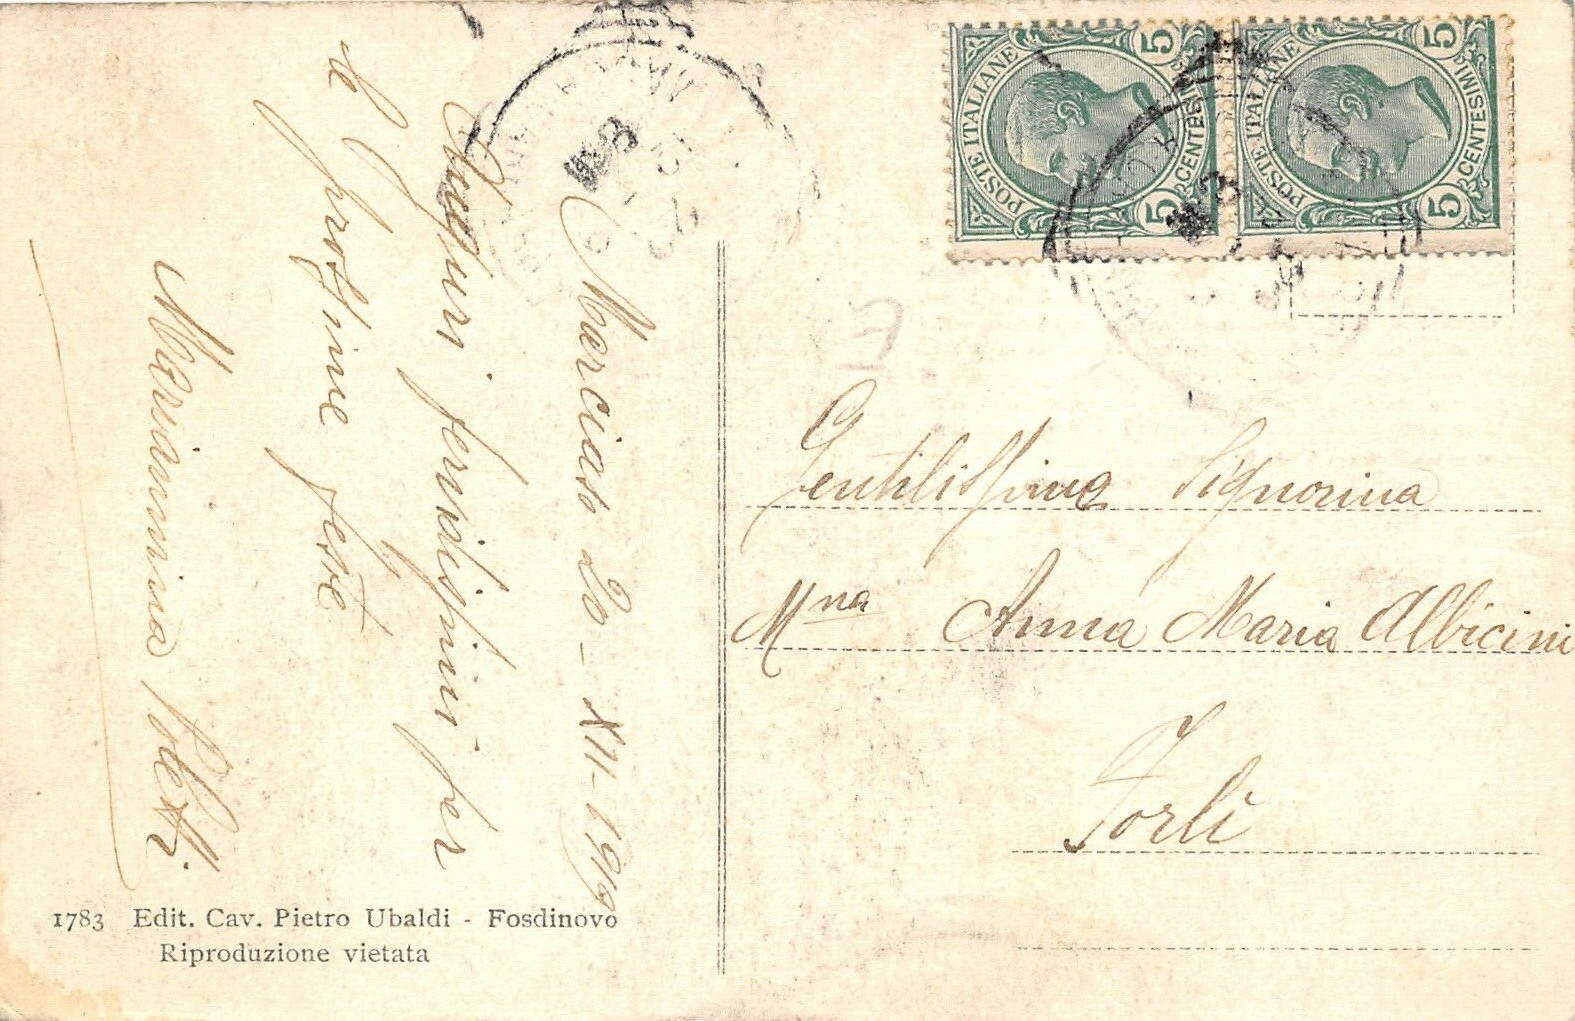 Marciaso 20 - XII - 1919
Auguri fervidissimi per
le prossime feste
Mariannina Poletti
1783 Edit. Cav. Pietro Ubaldi - Fosdinovo
Riproduzione vietata
POSTE ITALIANE
5 CENTESIMI 5
POSTE ITALIANE
5 CENTESIMI 5
Gentilissima Signorina
Mna Anna Maria Albicini
Forlì